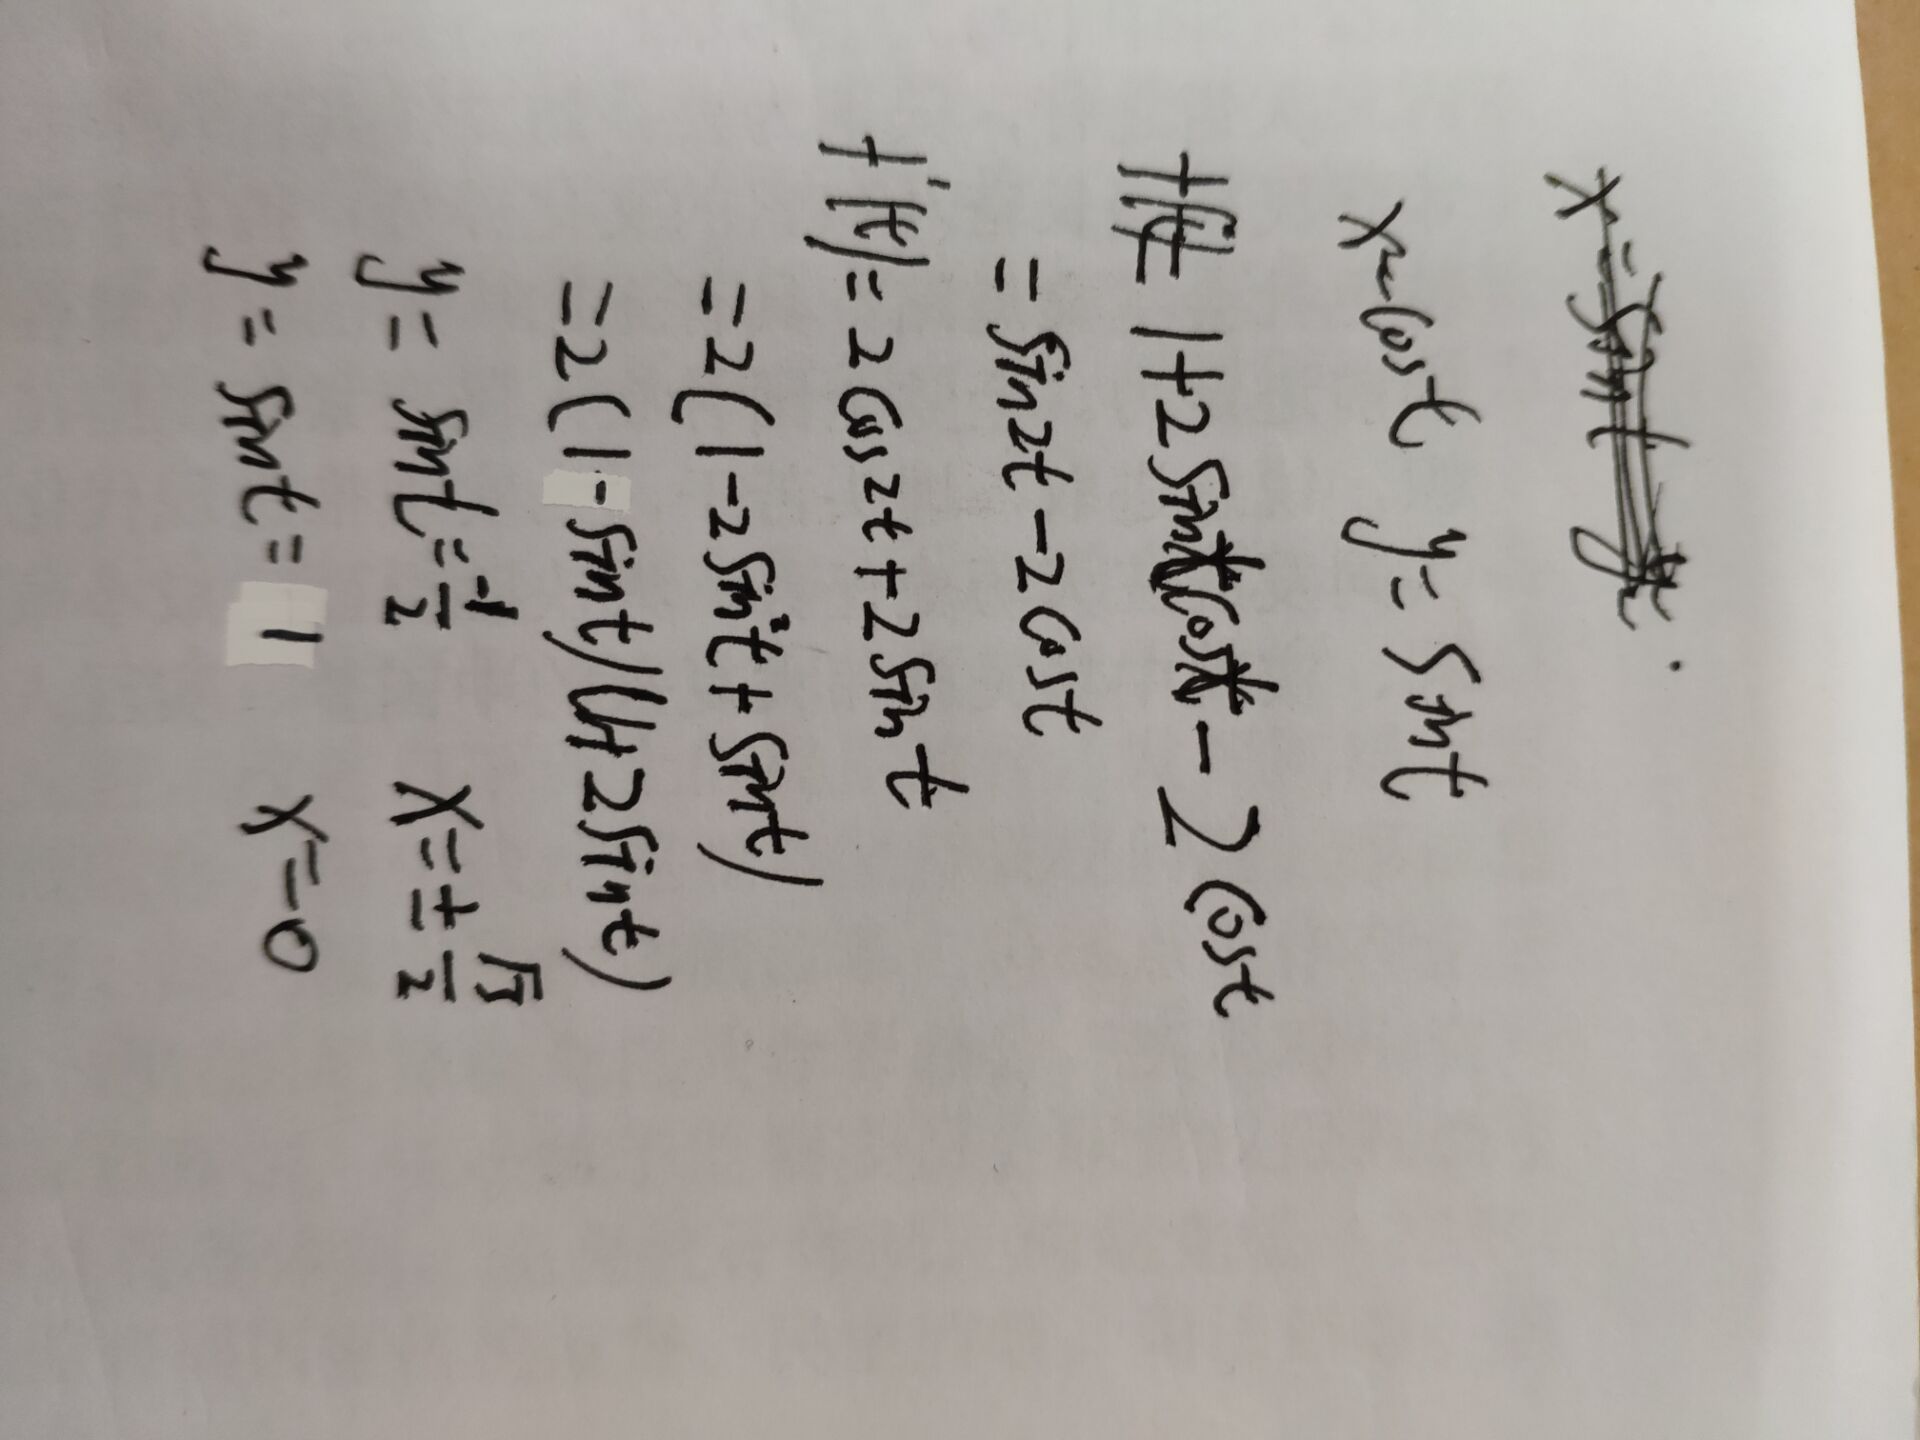 x=cost y=sint
f(t)= 1+2sintcost-2cost
=sin2t-2cost
f'(t)=2cos2t+2sint
=2(1-2sin²t+sint)
=2(1-sint)(1+2sint)
y=sint=-1/2 x=±√3/2
y=sint=1 x=0